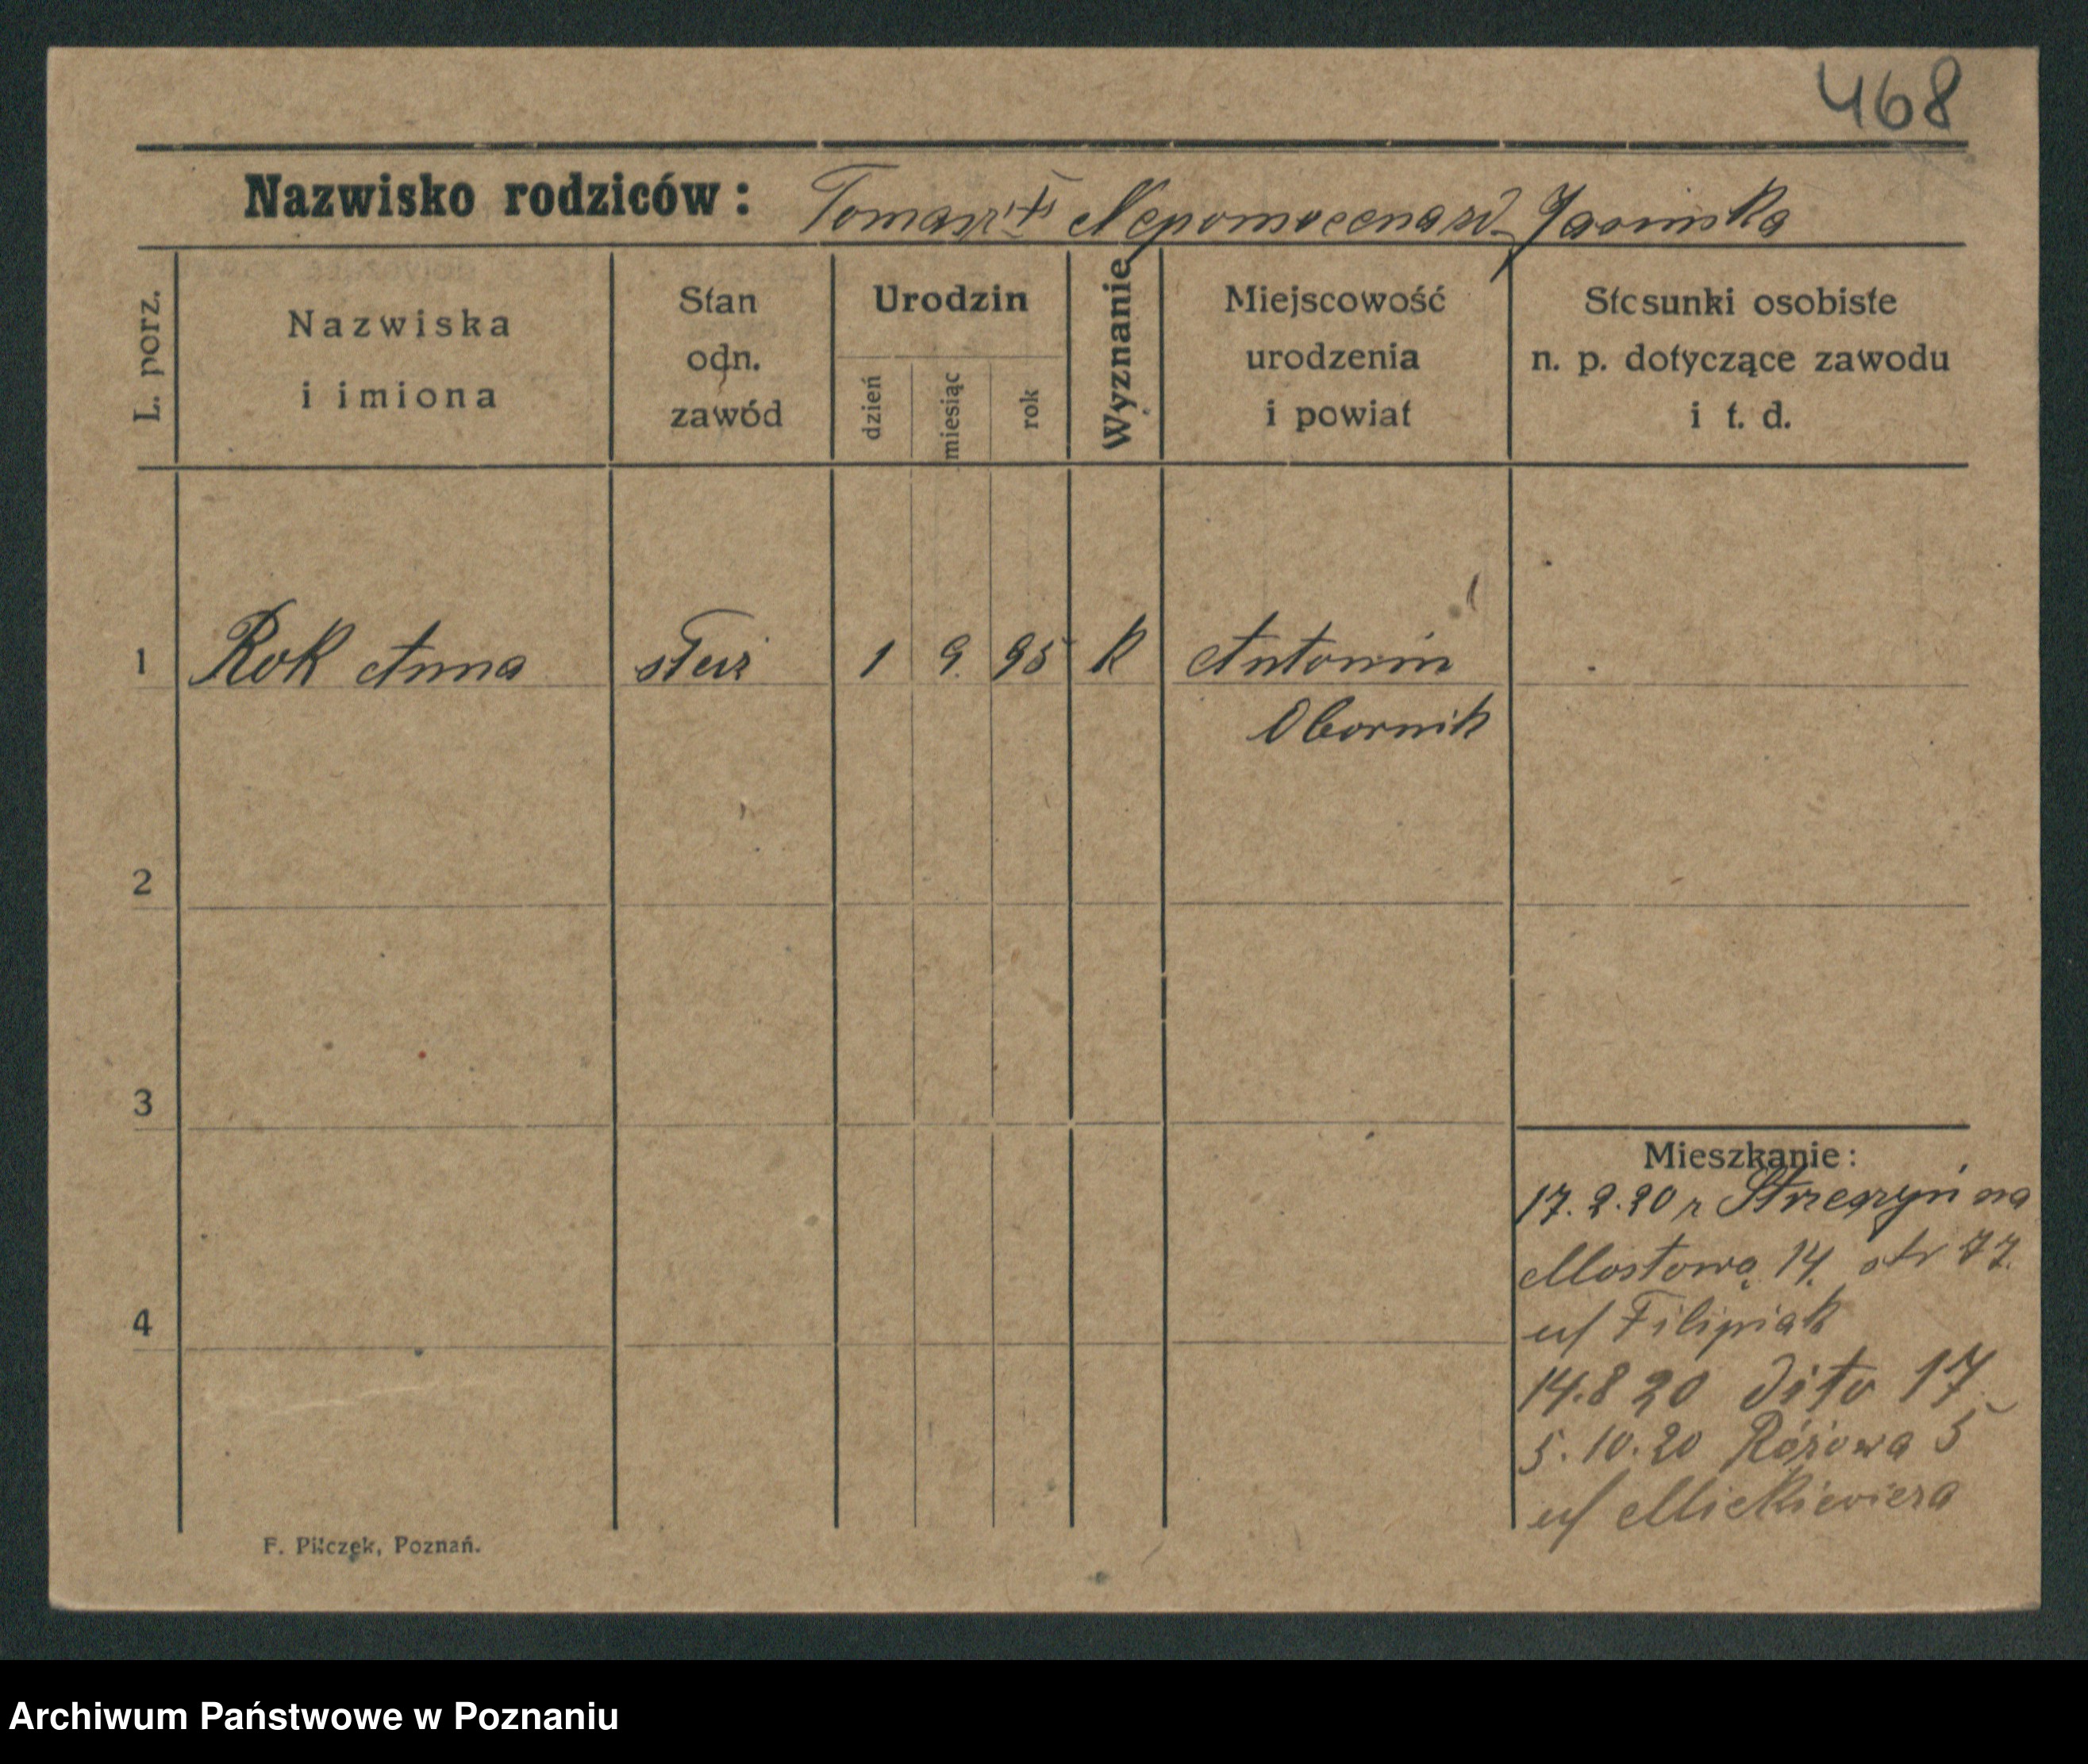 468
Nazwisko rodziców: Tomasz i Nepomocena zd. Jasinska
L. porz.
Nazwiska
i imiona
Stan
odn.
zawód
Urodzin
dzień
miesiąc
rok
Wyznanie
Miejscowość
urodzenia
i powiat
Stosunki osobiste
n. p. dotyczące zawodu
i t. d.
1 Rok Anna służ 1 9. 95 k Antonin
Obornik
2
3
4
Mieszkanie:
17. 2. 20 z na
Mostową 14. str 77.
u/ Filipiak
14.8 20 dito 17
5. 10. 20 Różowa 5
u/ Mickiewicza
F. Pilczek, Poznań.
Archiwum Państwowe w Poznaniu